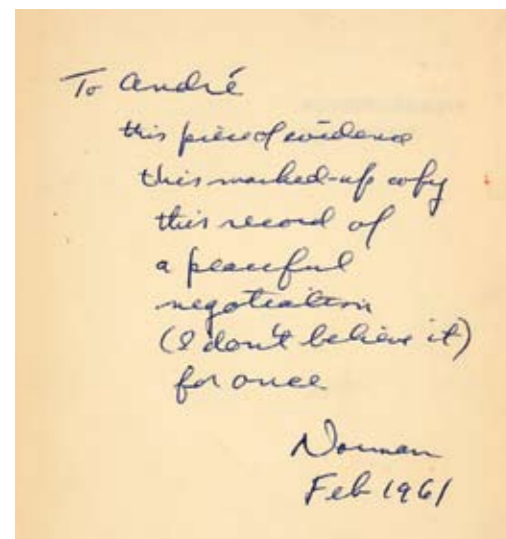 To André
this piece of evidence
this marked-up copy
this record of
a peaceful
negotiation
(I don't believe it)
for once
Norman
Feb 1961